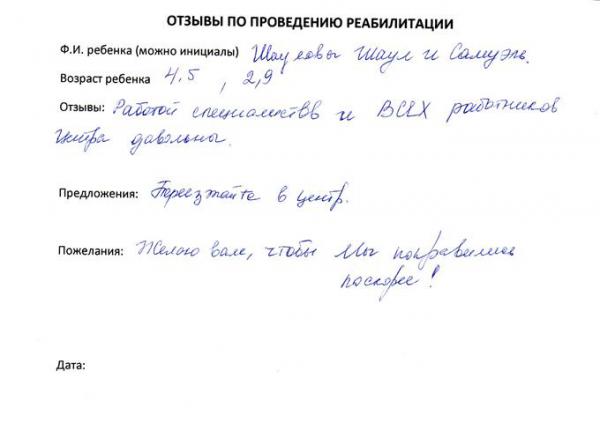 ОТЗЫВЫ ПО ПРОВЕДЕНИЮ РЕАБИЛИТАЦИИ
Ф.И. ребенка (можно инициалы) Шауловы Шаул и Самуэль.
Возраст ребенка 4,5 , 2,9
Отзывы: Работой специалистов и ВСЕХ работников
центра давольны.
Предложения: Переезжайте в центр.
Пожелания: Желаю вам, чтобы Мы поправились
поскорее!
Дата: